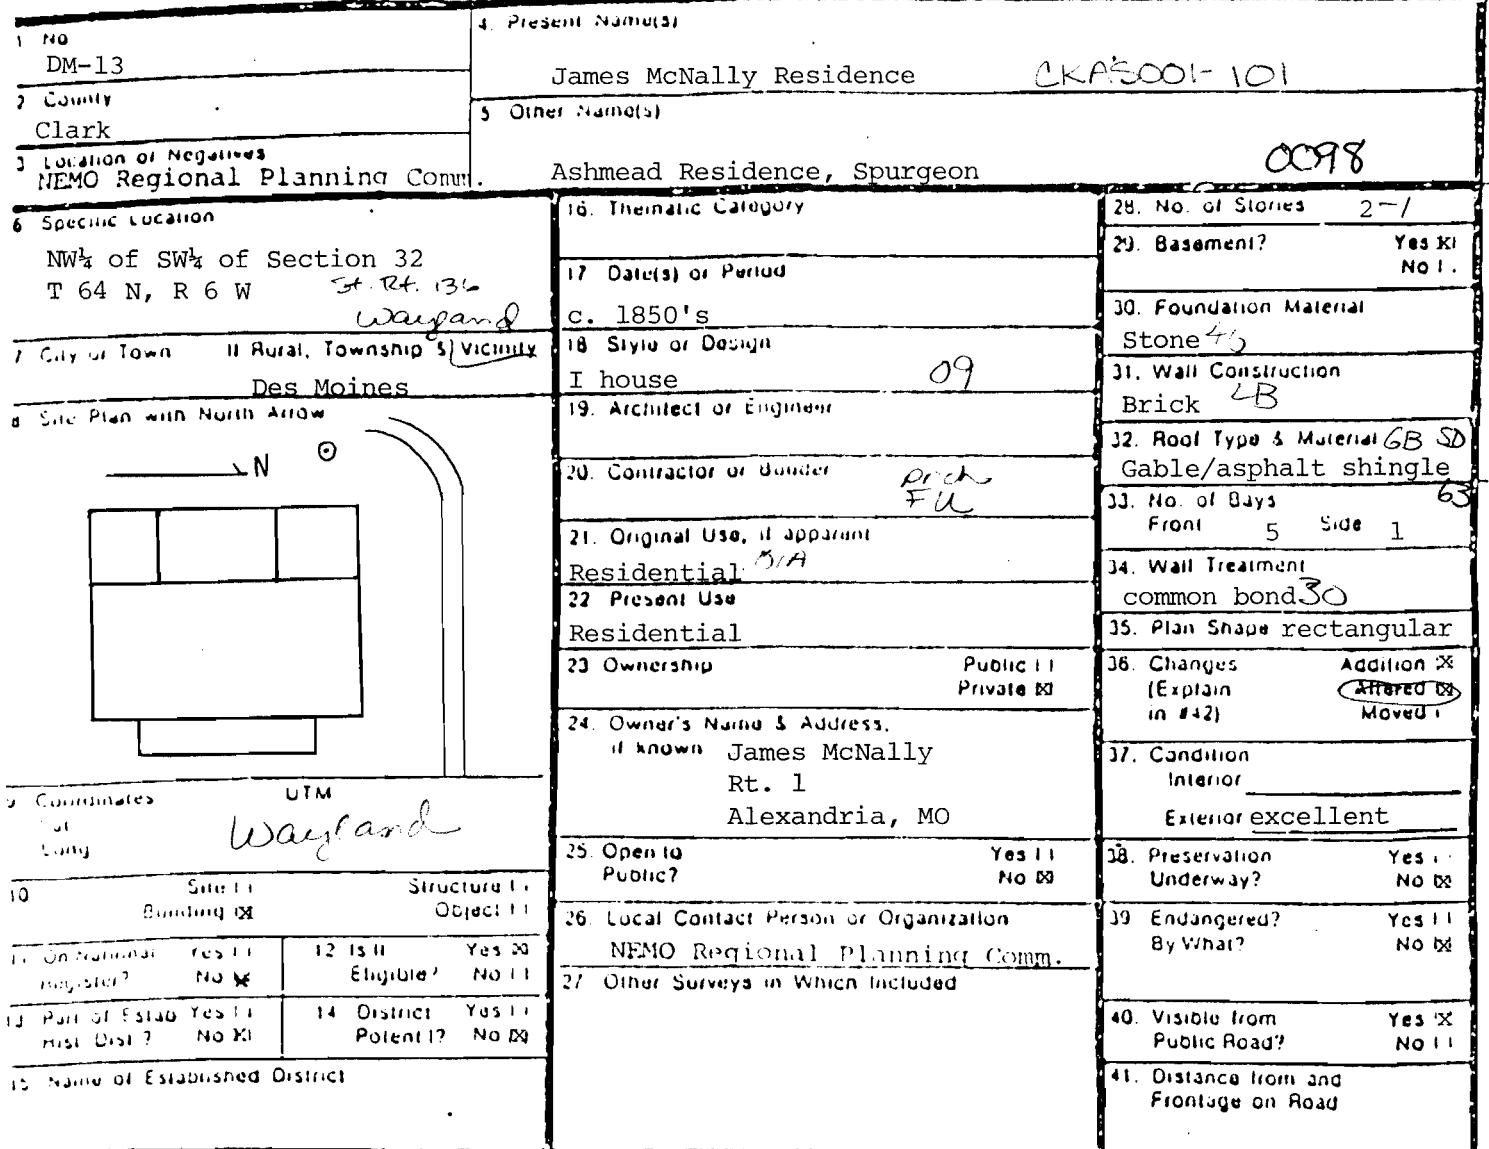 1 No
DM-13
2 County
Clark
3 Location of Negatives
NEMO Regional Planning Comm.
4. Present Name(s)
James McNally Residence CKAS001-101
5 Other Name(s)
Ashmead Residence, Spurgeon
0098
6 Specific Location
NW¼ of SW¼ of Section 32
T 64 N, R 6 W St. Rt. 136
Wayland
7 City or Town If Rural, Township & Vicinity
Des Moines
8 Site Plan with North Arrow
N
9 Coordinates UTM
Lat
Long
Wayland
10 Site Structure
Building ☒ Object
11 On National Register? Yes No ☒
12 Is It Eligible? Yes ☒ No
13 Part of Estab Hist Dist? Yes No ☒
14 District Potent'l? Yes No ☒
15 Name of Established District
16. Thematic Category
17 Date(s) or Period
c. 1850's
18 Style or Design
I house 09
19. Architect or Engineer
20. Contractor or Builder
21. Original Use, if apparent
Residential 01A
22 Present Use
Residential
23 Ownership Public
Private ☒
24. Owner's Name & Address,
if known James McNally
Rt. 1
Alexandria, MO
25. Open to Yes
Public? No ☒
26. Local Contact Person or Organization
NEMO Regional Planning Comm.
27 Other Surveys in Which Included
28. No. of Stories 2-1
29. Basement? Yes ☒
No
30. Foundation Material
Stone 40
31. Wall Construction
Brick
32. Roof Type & Material GB SD
Gable/asphalt shingle
63
33. No. of Bays
Front 5 Side 1
34. Wall Treatment
common bond 30
35. Plan Shape rectangular
36. Changes Addition ☒
(Explain Altered ☒
in #42) Moved
37. Condition
Interior
Exterior excellent
38. Preservation Yes
Underway? No ☒
39 Endangered? Yes
By What? No ☒
40. Visible from Yes ☒
Public Road? No
41. Distance from and
Frontage on Road